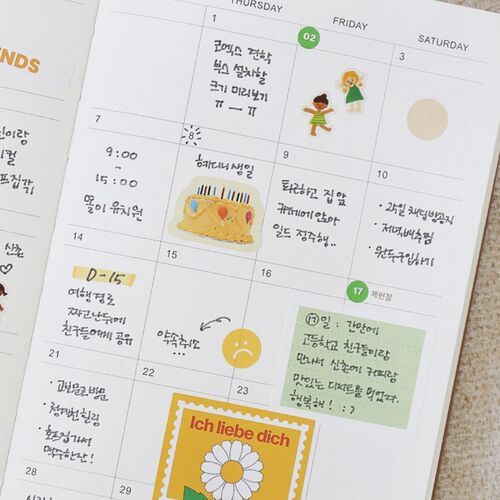 THURSDAY
FRIDAY
SATURDAY
NDS
1
02
3
코엑스 견학
부스 설치할
크기 미리보기
ㅠ ㅡ ㅠ
7
8
9
10
9:00
~
15:00
똘이 유치원
혜디니생일
퇴근하고 집 앞
카페에 앉아
일드 정주행..
· 과일 채팅방공지
· 저녁배추찜
· 원두구입하기
14
15
16
17 제헌절
D-15
여행경로
짜고난뒤에
친구들에게 공유
약속취소
...
⑰일 : 간만에
고등학교 친구들이랑
만나서 신촌에 커피랑
맛있는 디저트를 먹었다.
행복해! :)
21
22
23
· 교보문고 방문
· 청계천 힐링
· 호프집가서
맥주한잔!
Ich liebe dich
28
29